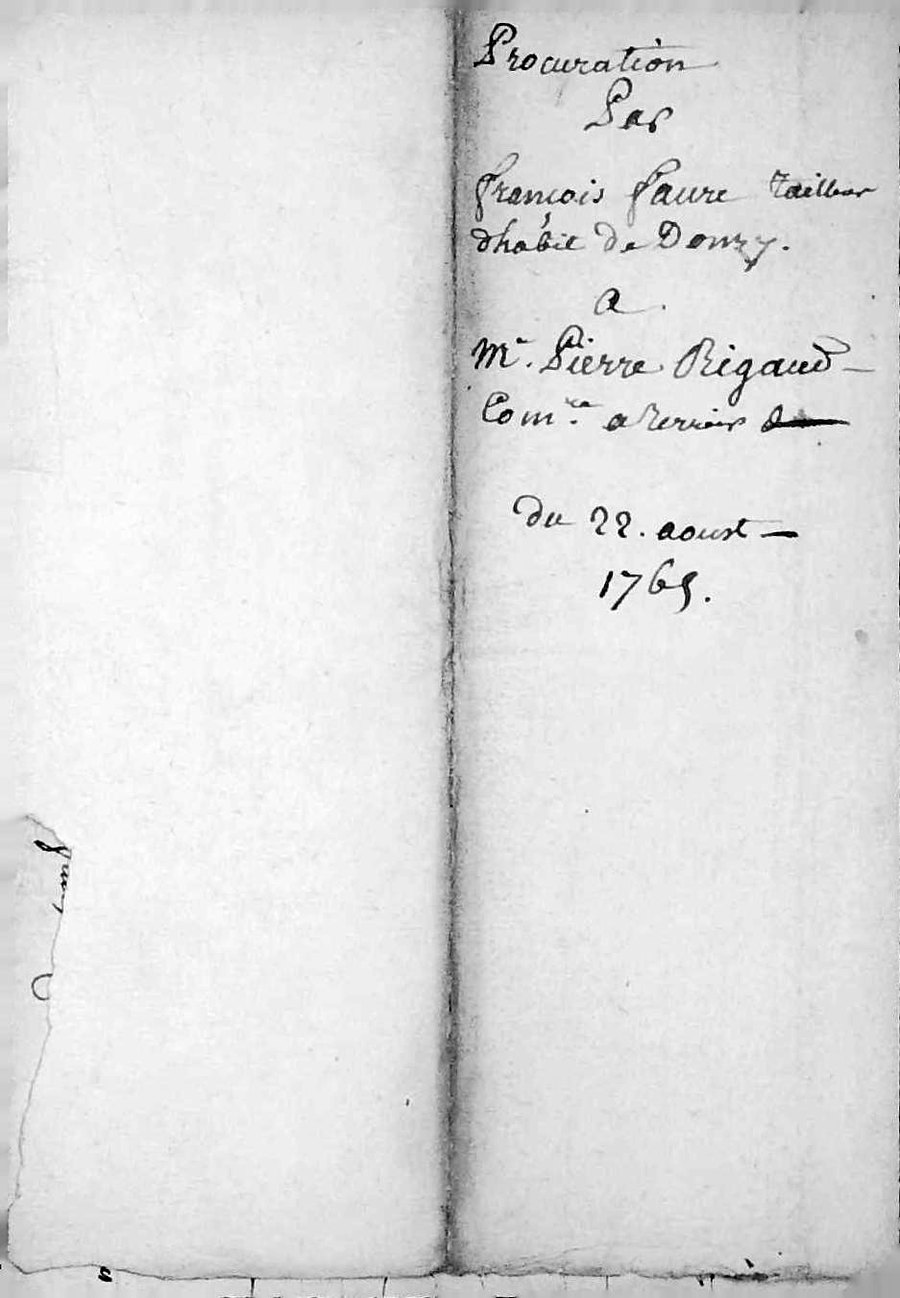 Procuration
Par
françois faure tailleur
dhabit de Donzy.
a
Mr. Pierre Rigaud
Comre. a terrier
du 22. aoust
1765.